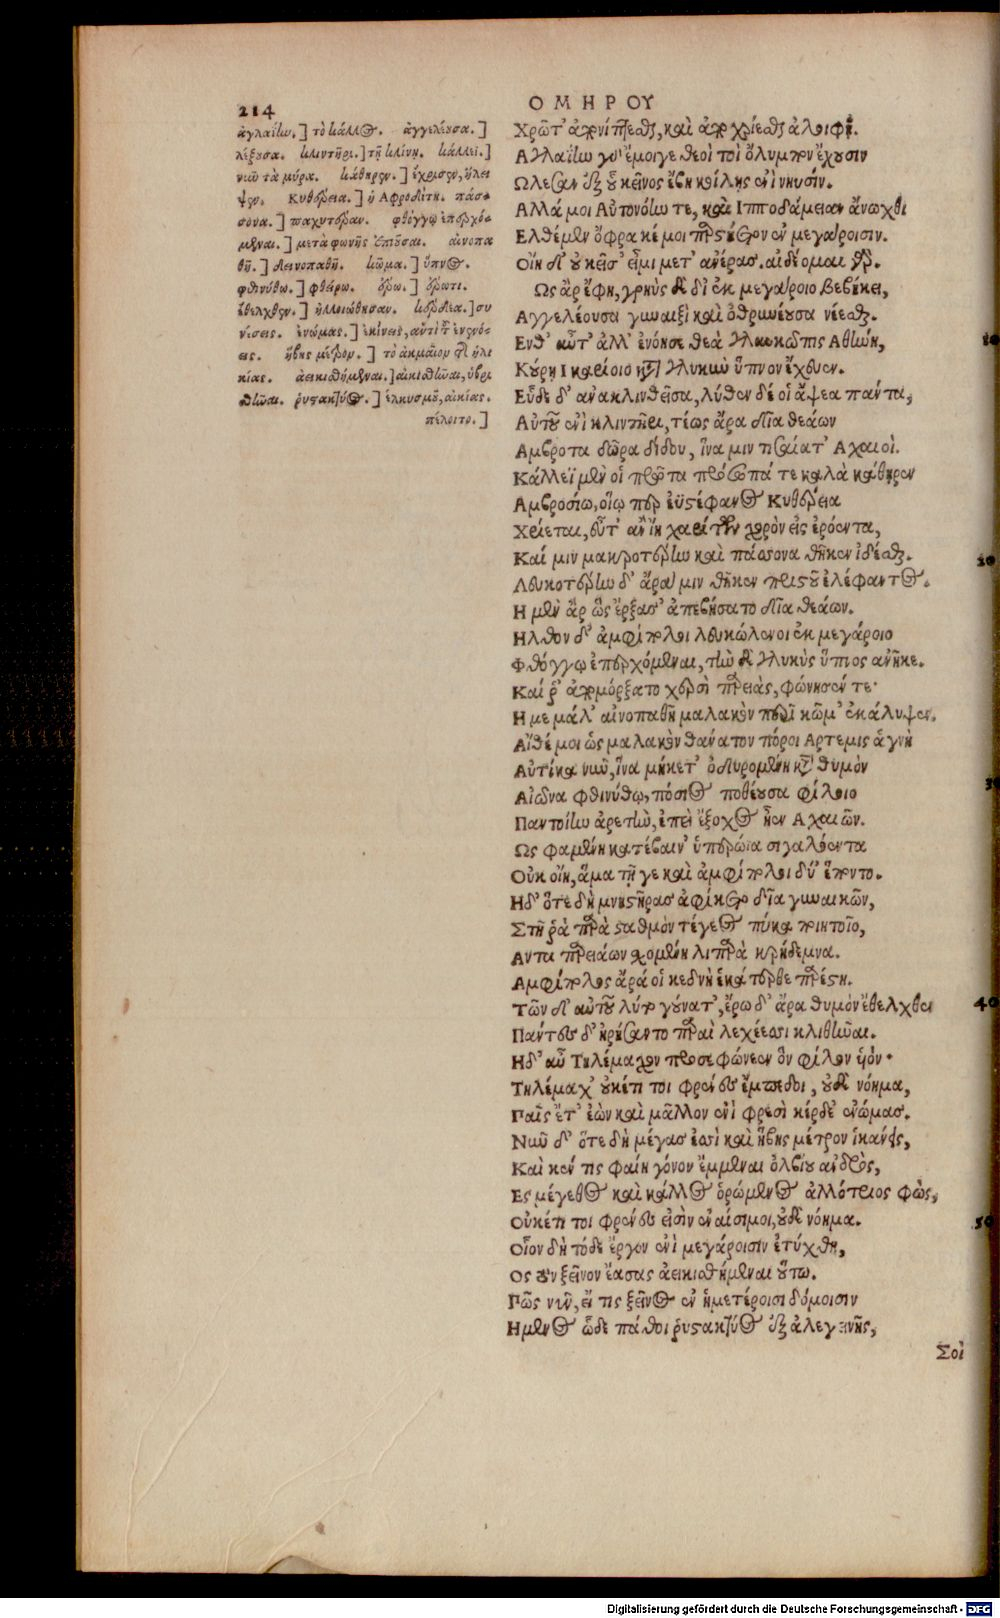 214
ΟΜΗΡΟΥ
ἀγλαΐην.] τὸ κάλλος. ἀγγελέουσα.]
λέξουσα. κλιντῆρι.] τῇ κλίνῃ. κάλλεϊ.]
νιῦ τὰ μύρα. κάθηρεν.] ἔχρισεν, ἤλει
ψεν. Κυθέρεια.] ἡ Αφροδίτη. πάσ-
σονα.] παχυτέραν. φθόγγῳ ἐπερχό-
μεναι.] μετὰ φωνῆς ἐπιοῦσαι. αἰνοπα
θῆ.] δεινοπαθῆ. κῶμα.] ὕπνος.
φθινύθω.] φθείρω. ἔρω.] ἔρωτι.
ἔθελχθεν.] ἠλλοιώθησαν. κέρδεα.] συ
νέσεις. ἐνώμας.] ἐκίνεις, αὐτὶ τοῦ ἐνενόε-
εις. ἥβης μέτρον.] τὸ ἀκμαῖον τῆς ἡλι
κίας. ἀεικισθήμεναι.] αἰκισθῆναι, ὑβρι
σθῆναι. ῥυστακτύος.] ἑλκυσμοῦ, αἰκίας.
πέλοιτο.]
Χρῶτ' ἀπονίπτεσθαι, καὶ ἀποχρίεσθαι ἀλοιφῇ.
Αγλαΐην γὰρ ἔμοιγε θεοὶ τοὶ ὄλυμπον ἔχουσιν
Ωλεσαν ἐξ οὗ κεῖνος ἔβη κοίλης ἐνὶ νηυσίν.
Αλλά μοι Αὐτονόην τε, καὶ Ιπποδάμειαν ἄνωχθι
Ελθέμεν ὄφρα κέ μοι παρστήετον ἐν μεγάροισιν.
Οἴη δ' οὐκ εἴσ' εἶμι μετ' ἀνέρας. αἰδέομαι γάρ.
Ως ἄρ ἔφη, γρηῢς δὲ δι' ἐκ μεγάροιο βεβήκει,
Αγγελέουσα γυναιξὶ καὶ ὀτρυνέουσα νέεσθαι.
Ενθ' αὖτ' ἄλλ' ἐνόησε θεὰ γλαυκῶπις Αθήνη,
Κούρη Ικαρίοιο κατὰ γλυκὺν ὕπνον ἔχευεν.
Εὗδε δ' ἀνακλινθεῖσα, λύθεν δέ οἱ ἅψεα πάντα,
Αὐτοῦ ἐνὶ κλιντῆρι, τέως ἄρα δῖα θεάων
Αμβροτα δῶρα δίδου, ἵνα μιν θησαίατ' Αχαιοί.
Κάλλεϊ μὲν οἱ πρῶτα πρόσωπά τε καλὰ κάθηρεν
Αμβροσίῳ, οἵῳ περ ἐϋστέφανος Κυθέρεια
Χρίεται, εὖτ' ἂν ἴῃ χαρίτων χορὸν εἰς ἐρόεντα,
Καί μιν μακροτέρην καὶ πάσσονα θῆκεν ἰδέσθαι.
Λευκοτέρην δ' ἄρα μιν θῆκεν πριστοῦ ἐλέφαντος.
Η μὲν ἄρ ὣς ἔρξασ' ἀπεβήσατο δῖα θεάων.
Ηλθον δ' ἀμφίπολοι λευκώλενοι ἐκ μεγάροιο
Φθόγγῳ ἐπερχόμεναι, τὴν δὲ γλυκὺς ὕπνος ἀνῆκε.
Καί ῥ' ἀπομόρξατο χερσὶ παρειάς, φώνησέν τε·
Η με μάλ' αἰνοπαθῆ μαλακὸν περὶ κῶμ' ἐκάλυψεν.
Αἴθέ μοι ὣς μαλακὸν θάνατον πόροι Αρτεμις ἁγνὴ
Αὐτίκα νιῦ, ἵνα μήκετ' ὀδυρομένη κατὰ θυμὸν
Αἰῶνα φθινύθω, πόσιος ποθέουσα φίλοιο
Παντοίην ἀρετὴν, ἐπεὶ ἔξοχος ἦεν Αχαιῶν.
Ως φαμένη κατέβαιν' ὑπερώϊα σιγαλόεντα
Οὐκ οἴη, ἅμα τῇ γε καὶ ἀμφίπολοι δύ' ἕποντο.
Ηδ' ὅτε δὴ μνηστῆρας ἀφίκετο δῖα γυναικῶν,
Στῆ ῥὰ παρὰ σταθμὸν τέγεος πύκα ποιητοῖο,
Αντα παρειάων σχομένη λιπαρὰ κρήδεμνα.
Αμφίπολος ἄρά οἱ κεδνὴ ἑκάτερθε παρέστη.
Τῶν δ' αὐτοῦ λύτο γούνατ', ἔρω δ' ἄρα θυμὸν ἔθελχθεν
Πάντες δ' ἠρήσαντο παραὶ λεχέεσσι κλιθῆναι.
Ηδ' αὖ Τηλέμαχον προσεφώνεεν ὃν φίλον ὑιόν·
Τηλέμαχ' οὐκέτι τοι φρένες ἔμπεδοι, οὐδὲ νόημα,
Παῖς ἔτ' ἐὼν καὶ μᾶλλον ἐνὶ φρεσὶ κέρδε' ἐνώμας.
Νιῦ δ' ὅτε δὴ μέγας ἐσσὶ καὶ ἥβης μέτρον ἱκάνεις,
Καὶ κέν τις φαίη γόνον ἔμμεναι ὀλβίου ἀνδρὸς,
Ες μέγεθος καὶ κάλλος ὁρώμενος ἀλλότριος φὼς,
Οὐκέτι τοι φρένες εἰσὶν ἐναίσιμοι, οὐδὲ νόημα.
Οἷον δὴ τόδε ἔργον ἐνὶ μεγάροισιν ἐτύχθη,
Ος τὸν ξεῖνον ἔασας ἀεικισθήμεναι οὕτω.
Πῶς νιῦ, εἴ τις ξεῖνος ἐν ἡμετέροισι δόμοισιν
Ημενος ὧδε πάθοι ῥυστακτύος ἐξ ἀλεγεινῆς,
Σοί
10
20
30
40
50
Digitalisierung gefördert durch die Deutsche Forschungsgemeinschaft - DFG